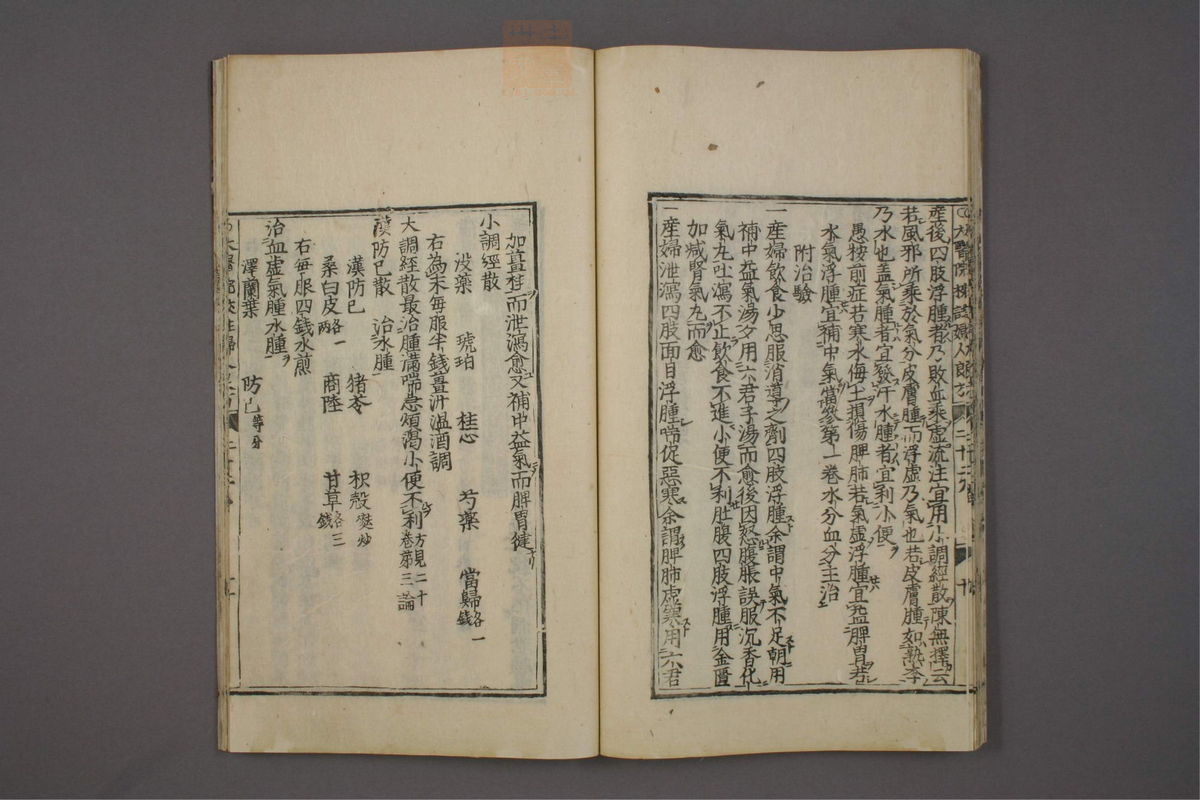 太醫院校註婦人良方
産後四肢浮腫者乃敗血乘虛流注宜用小調經散陳無擇云
若風邪所乘於氣分皮膚腫而浮虛乃氣也若皮膚腫如熟李
乃水也盖氣腫者宜發汗水腫者宜利小便
愚按前症若寒水侮土損傷脾肺若氣虛浮腫宜益脾胃若
水氣浮腫宜補中氣當參第一卷水分血分主治
附治驗
一産婦飲食少思服消導之劑四肢浮腫余謂中氣不足朝用
補中益氣湯夕用六君子湯而愈後因怒腹脹誤服沉香化
氣丸吐瀉不止飲食不進小便不利肚腹四肢浮腫用金匱
加减腎氣丸而愈
一産婦泄瀉四肢面目浮腫喘促惡寒余謂脾肺虛寒用六君
加薑桂而泄瀉愈又補中益氣而脾胃健
小調經散
没藥 琥珀 桂心 芍藥 當歸各一錢
右為末每服半錢薑汁温酒調
大調經散最治腫滿喘急煩渴小便不利方見二十卷第三論
漢防已散 治水腫
漢防已 猪苓 枳殻麩炒
桑白皮各一兩 商陸 甘草各三錢
右每服四錢水煎
治血虛氣腫水腫
澤蘭葉 防已等分